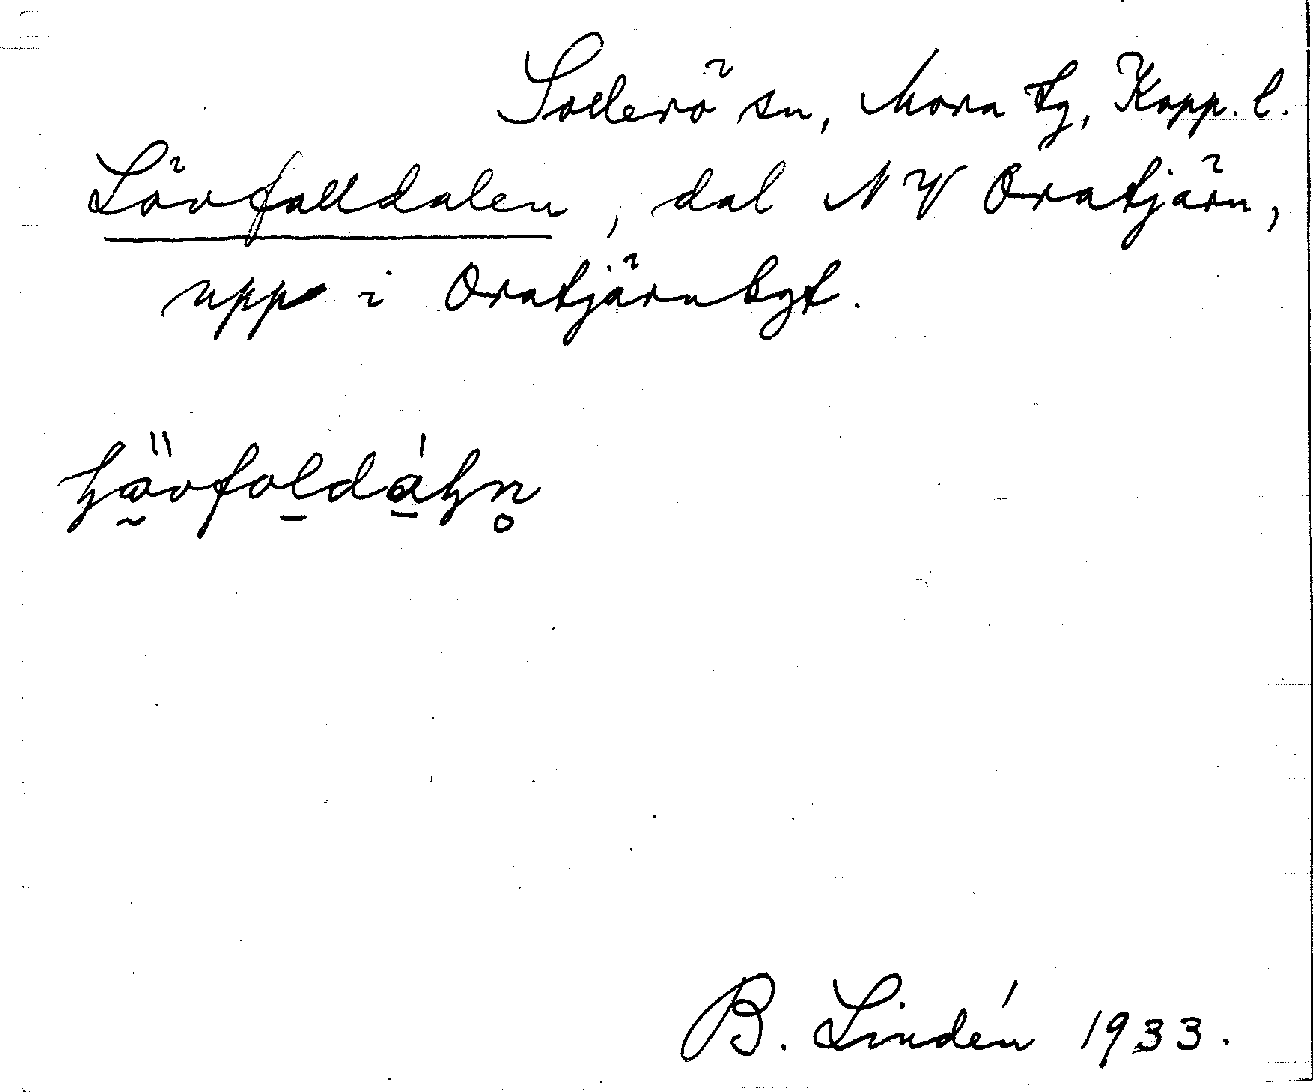 Solerö sn, Mora tg, Kopp. l.
Lövfalldalen, dal NV Oratjärn,
upp i Oratjärnbgt.
B. Lindén 1933.